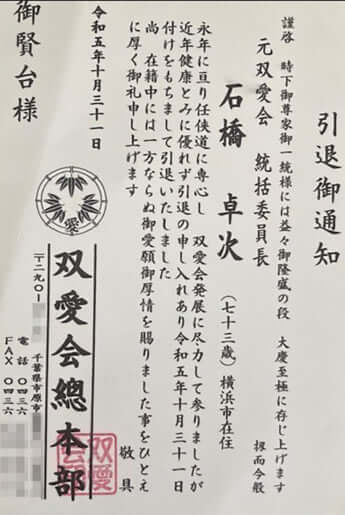 引退御通知
謹啓 時下御尊家御一統様には益々御隆盛の段 大慶至極に存じ上げます
扨而今般
元双愛会 統括委員長
石橋 卓次 (七十三歳) 横浜市在住
永年に亘り任俠道に専心し 双愛会発展に尽力して参りましたが
近年健康とみに優れず引退の申し入れあり令和五年十月三十一日
付けをもちまして引退いたしました
尚 在籍中には一方ならぬ御愛顧御厚情を賜りました事をひとえ
に厚く御礼申し上げます
敬具
令和五年十月三十一日
愛
双愛会總本部
双愛
会印
〒二九〇-
千葉県市原市
電話 〇四三六
FAX 〇四三六
御賢台様